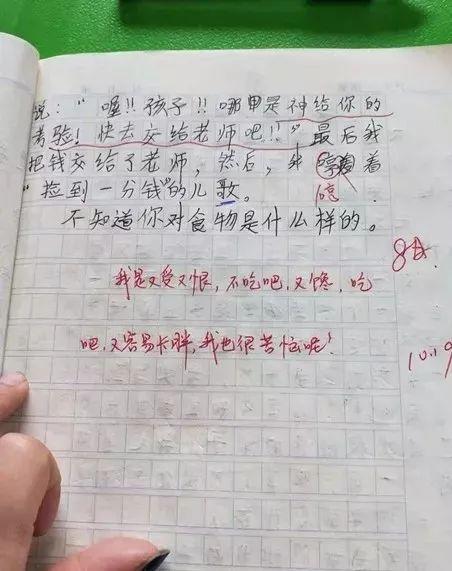 说：“喔!!孩子!!哪里是神给你的
考验！快去交给老师吧!!”最后我
把钱交给了老师，然后，我 着
“捡到一分钱”的儿歌。 哼
不知道你对食物是什么样的。
8分.
我是又爱又恨，不吃吧，又馋，吃
吧，又容易长胖，我也很苦恼呢！
10.19